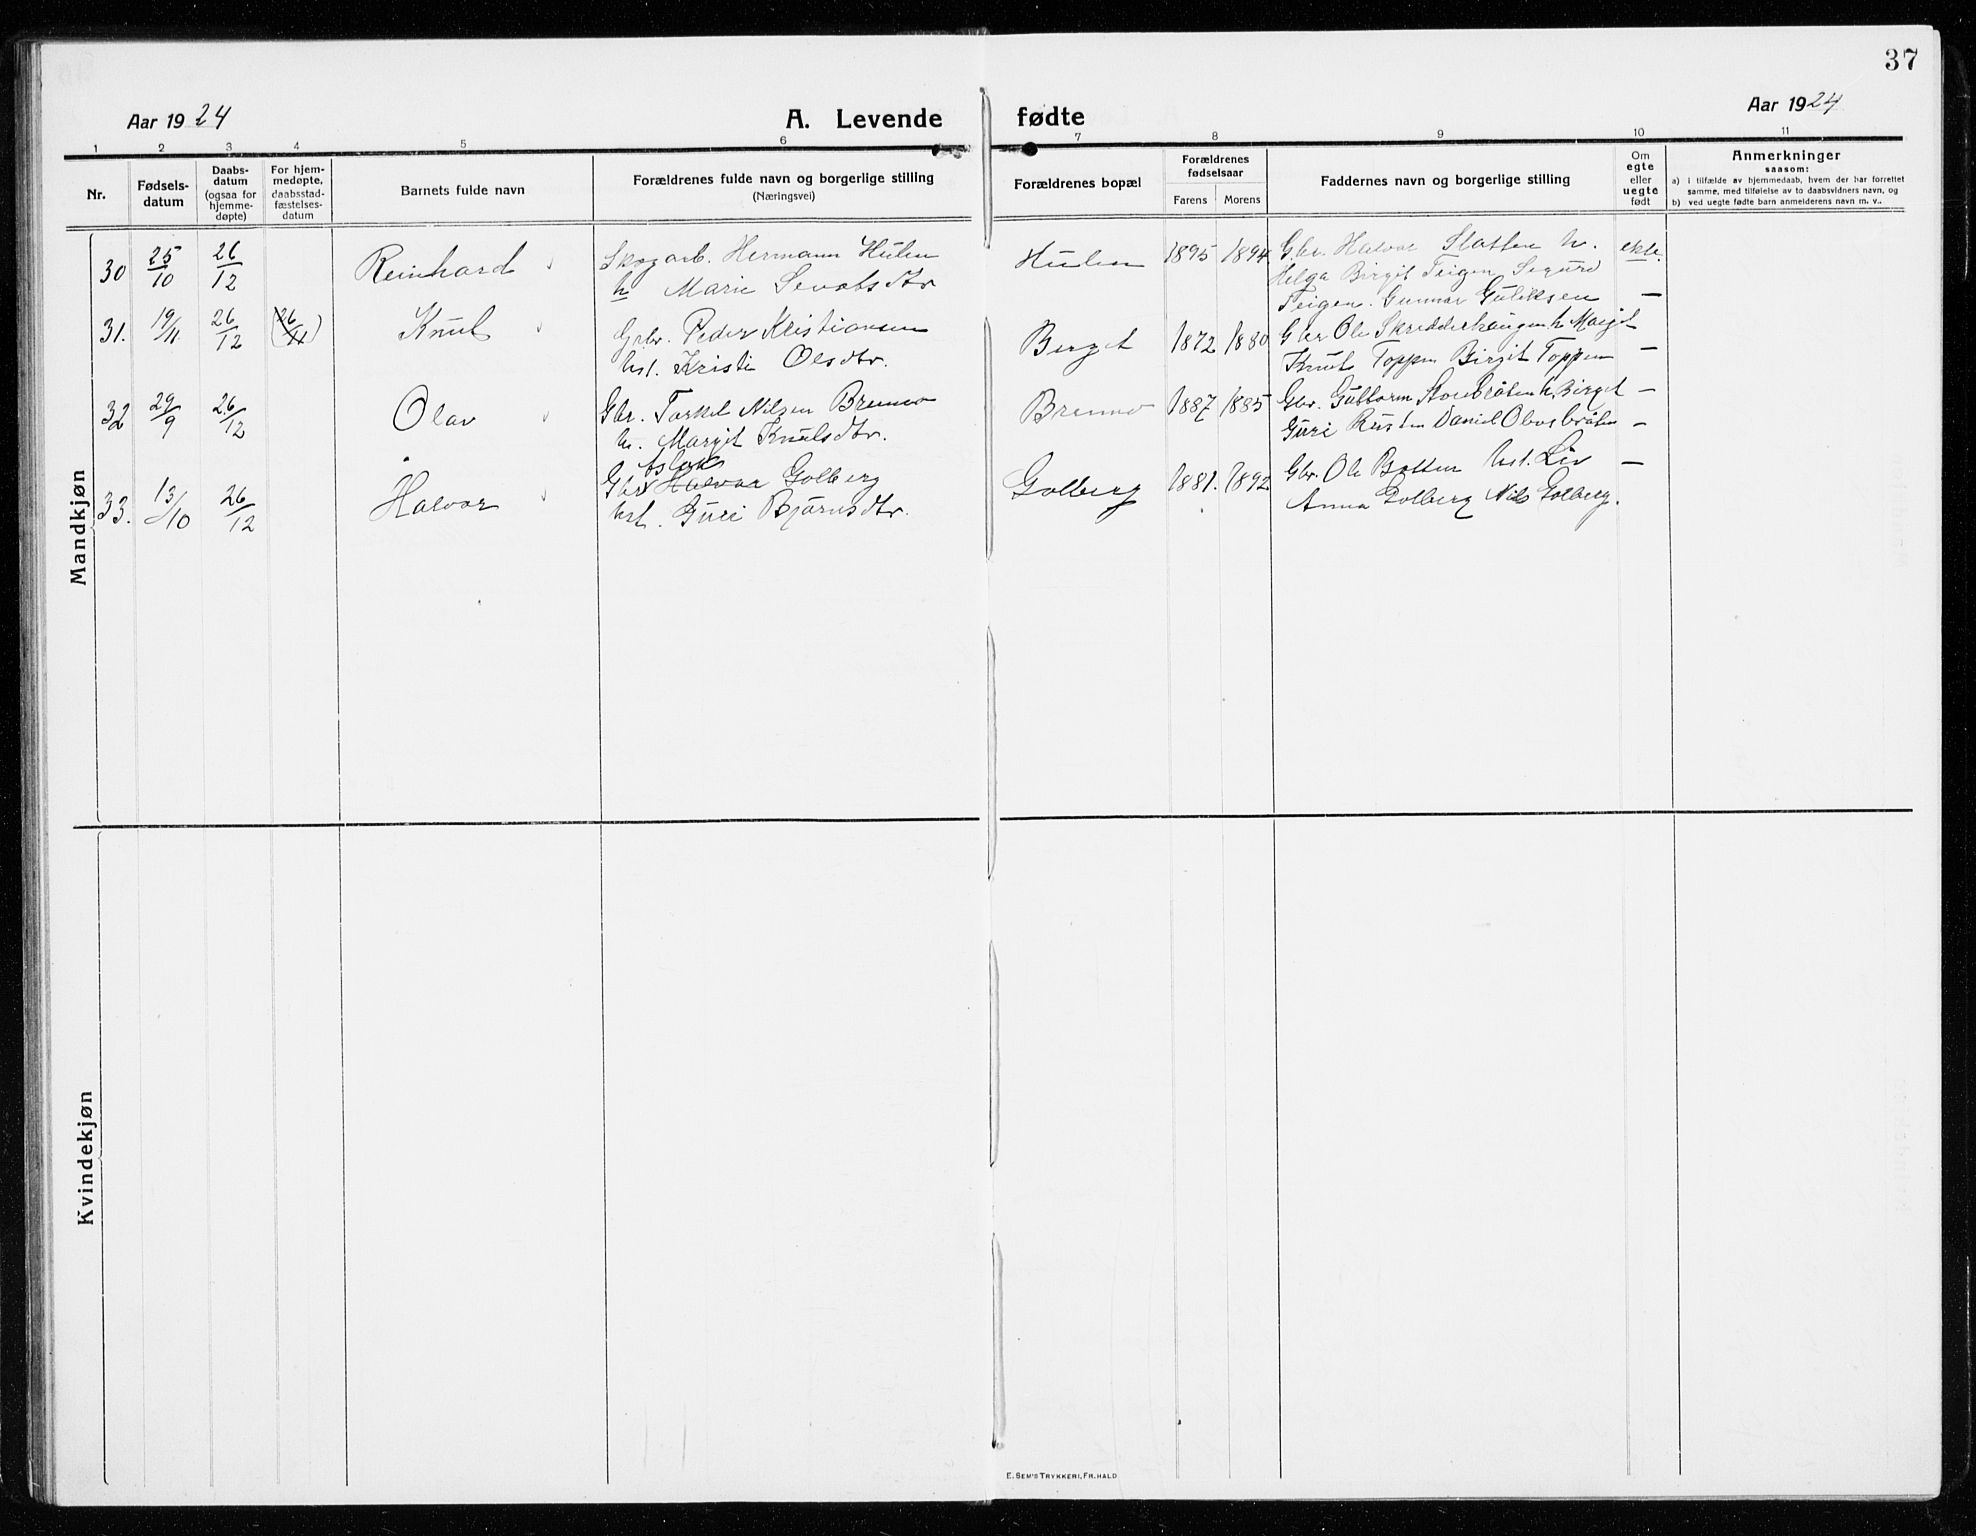 37
Aar 1924 A. Levende fødte Aar 1924
1 2 3 4 5 6 7 8 9 10 11
Nr. Fødsels-datum Daabs-datum (ogsaa for hjemme-døpte) For hjem-medøpte, daabsstad-fæstelses-datum Barnets fulde navn Forældrenes fulde navn og borgerlige stilling (Næringsvei) Forældrenes bopæl Forældrenes fødselsaar Farens Morens Faddernes navn og borgerlige stilling Om egte eller uegte født Anmerkninger saasom:
a) i tilfælde av hjemmedaab, hvem der har forrettet samme, med tilføielse av to daabsvidners navn, og
b) ved uegte fødte barn anmelderens navn m. v..
Mandkjøn
30 25/10 26/12 Reinhard Skogarb. Hermann Hulen Hulen 1895 1894 Gbr. Halvor Slatten h. ekte.
h Marie Sevatsdtr Helga Birgit Teigen Segurd
Teigen. Gunnar Guliksen —
31. 19/11 26/12 (26/11) Knut Gbr. Peder Kristiansen Berget 1872 1880 Gbr Ole Skredderhaugen h. Margit
hst. Kristi Olsdtr. Knut Toppen Birgit Toppen —
32 29/9 26/12 Olav Gbr. Torkel Nilsen Bremo Bremo 1887 1885 Gbr. Guttorm Storebråten h. Birget —
h. Margit Knutsdtr. Guri Rusten Daniel Olavsbråten —
Aslak
33. 13/10 26/12 Halvor Gbr Halvor Golberg Golberg 1881. 1892 Gbr. Ole Botten hst. Liv —
hst. Guri Bjørnsdtr. Anna Golberg Nils Golberg.
Kvindekjøn
E. SEM'S TRYKKERI, FR.HALD